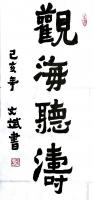 觀海聽濤
己亥年 文斌書